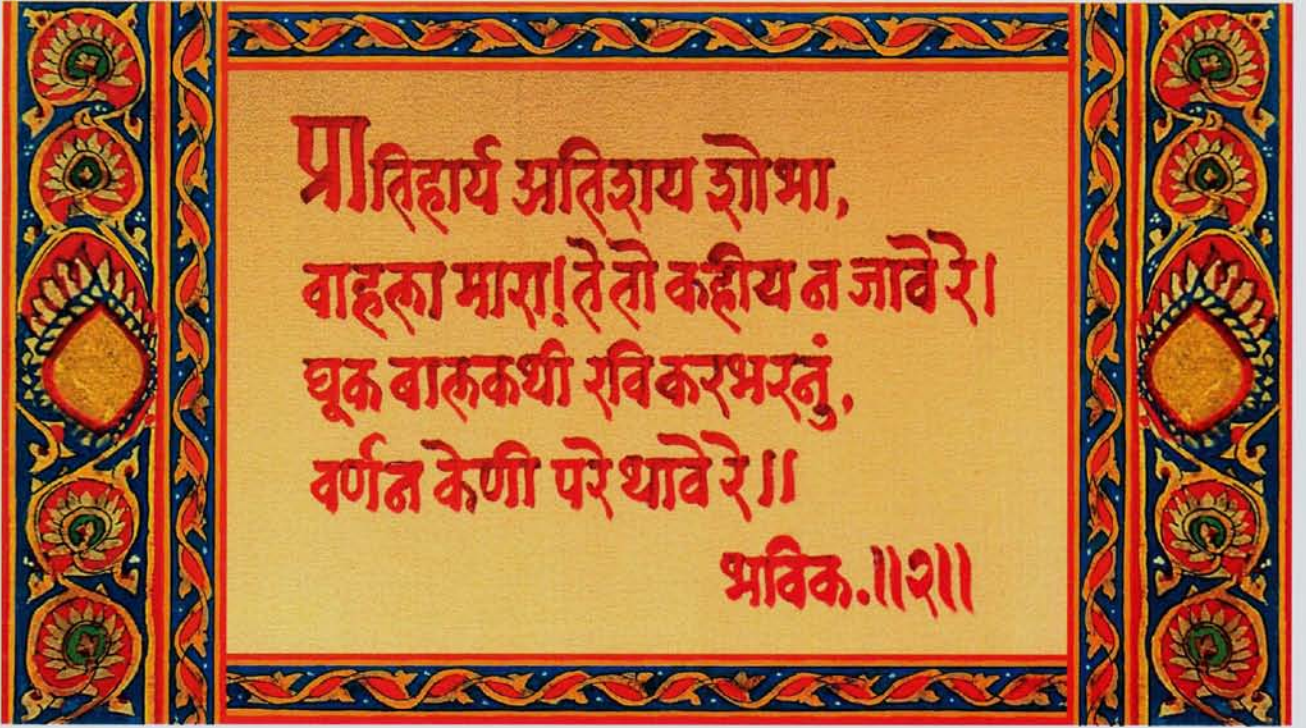 प्रातिहार्य अतिशय शोभा,
वाहला मारा! ते तो कहीय न जावे रे।
घूक बालकथी रविकरभरनुं,
वर्णन केणी परे थावे रे॥
भविक.॥२॥